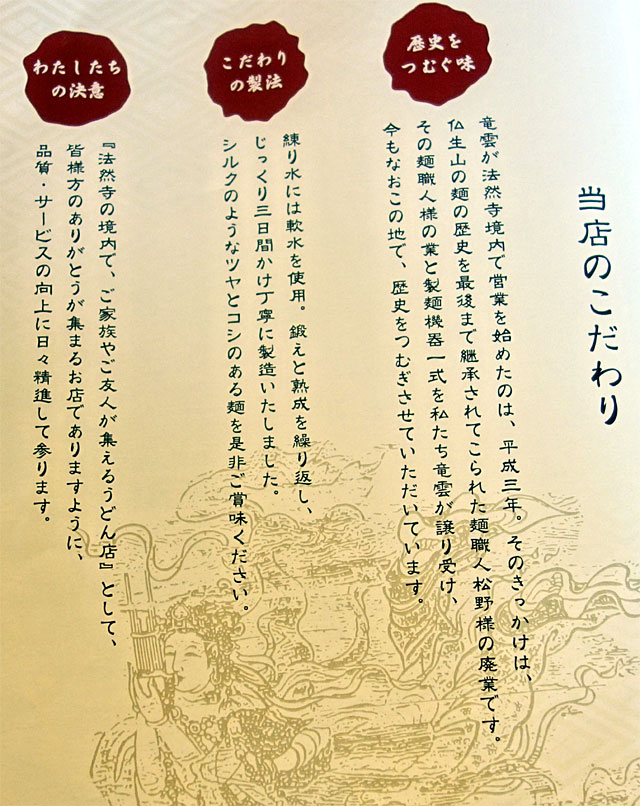 当店のこだわり
歴史を
つむぐ味
竜雲が法然寺境内で営業を始めたのは、平成三年。そのきっかけは、
仏生山の麺の歴史を最後まで継承されてこられた麺職人松野様の廃業です。
その麺職人様の業と製麺機器一式を私たち竜雲が譲り受け、
今もなおこの地で、歴史をつむぎさせていただいています。
こだわり
の製法
練り水には軟水を使用。鍛えと熟成を繰り返し、
じっくり三日間かけ丁寧に製造いたしました。
シルクのようなツヤとコシのある麺を是非ご賞味ください。
わたしたち
の決意
『法然寺の境内で、ご家族やご友人が集えるうどん店』として、
皆様方のありがとうが集まるお店でありますように、
品質・サービスの向上に日々精進して参ります。